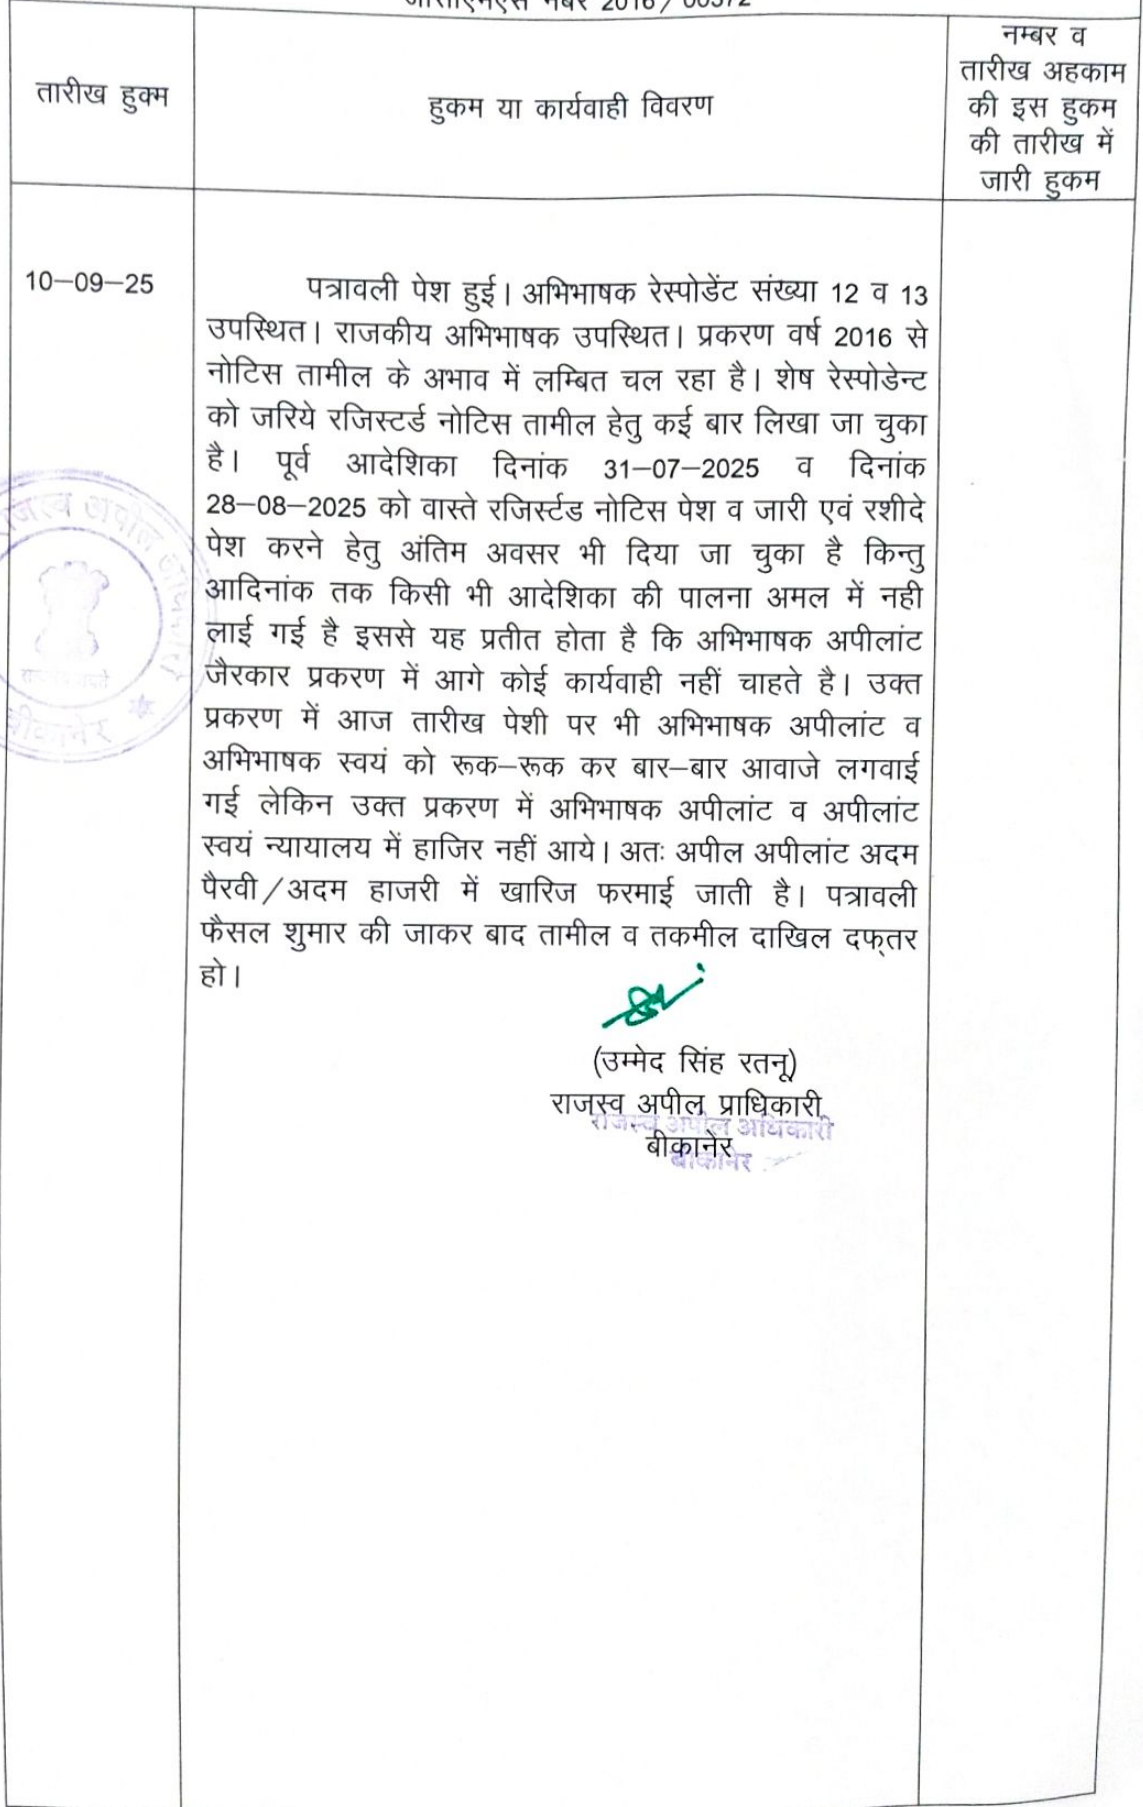 नम्बर व
तारीख अहकाम
की इस हुकम
की तारीख में
जारी हुकम
तारीख हुक्म
हुकम या कार्यवाही विवरण
10–09–25
पत्रावली पेश हुई। अभिभाषक रेस्पोडेंट संख्या 12 व 13
उपस्थित। राजकीय अभिभाषक उपस्थित। प्रकरण वर्ष 2016 से
नोटिस तामील के अभाव में लम्बित चल रहा है। शेष रेस्पोडेन्ट
को जरिये रजिस्टर्ड नोटिस तामील हेतु कई बार लिखा जा चुका
है। पूर्व आदेशिका दिनांक 31-07-2025 व दिनांक
28–08–2025 को वास्ते रजिर्स्टड नोटिस पेश व जारी एवं रशीदे
पेश करने हेतु अंतिम अवसर भी दिया जा चुका है किन्तु
आदिनांक तक किसी भी आदेशिका की पालना अमल में नही
लाई गई है इससे यह प्रतीत होता है कि अभिभाषक अपीलांट
जैरकार प्रकरण में आगे कोई कार्यवाही नहीं चाहते है। उक्त
प्रकरण में आज तारीख पेशी पर भी अभिभाषक अपीलांट व
अभिभाषक स्वयं को रूक–रूक कर बार–बार आवाजे लगवाई
गई लेकिन उक्त प्रकरण में अभिभाषक अपीलांट व अपीलांट
स्वयं न्यायालय में हाजिर नहीं आये। अतः अपील अपीलांट अदम
पैरवी/अदम हाजरी में खारिज फरमाई जाती है। पत्रावली
फैसल शुमार की जाकर बाद तामील व तकमील दाखिल दफ्तर
हो।
(उम्मेद सिंह रतनू)
राजस्व अपील प्राधिकारी
राजस्व अपील अधिकारी
बीकानेर
बीकानेर
अपील
बीकानेर